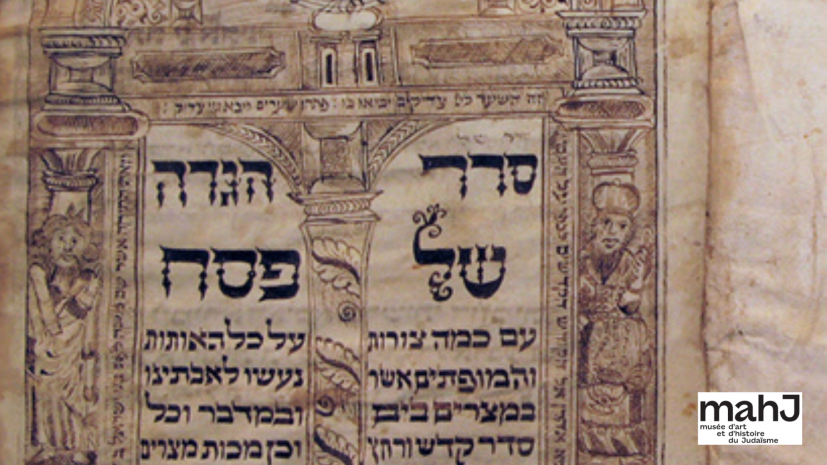 זה השער לי׳ צדיקים יבואו בו : פתחו שערים ויבא גוי צדיק :
סדר הגדה
של פסח
עם כמה צורות על כל האותות
והמופתים אשר נעשו לאבתינו
במצרים בים ובמדבר וכל
סדר קדש ורחץ וכן מכות מצרים
mahJ
musée d'art
et d'histoire
du Judaïsme